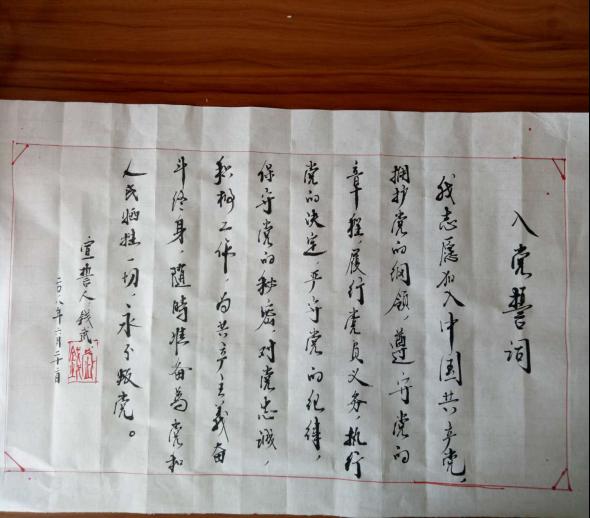 入党誓词
我志愿加入中国共产党，
拥护党的綱領，遵守党的
章程，履行党员义务，执行
党的决定，严守党的纪律，
保守党的秘密，对党忠诚，
积极工作，为共产主义奋
斗终身，随時准备為党和
人民牺牲一切，永不叛党。
宣誓人 钱武